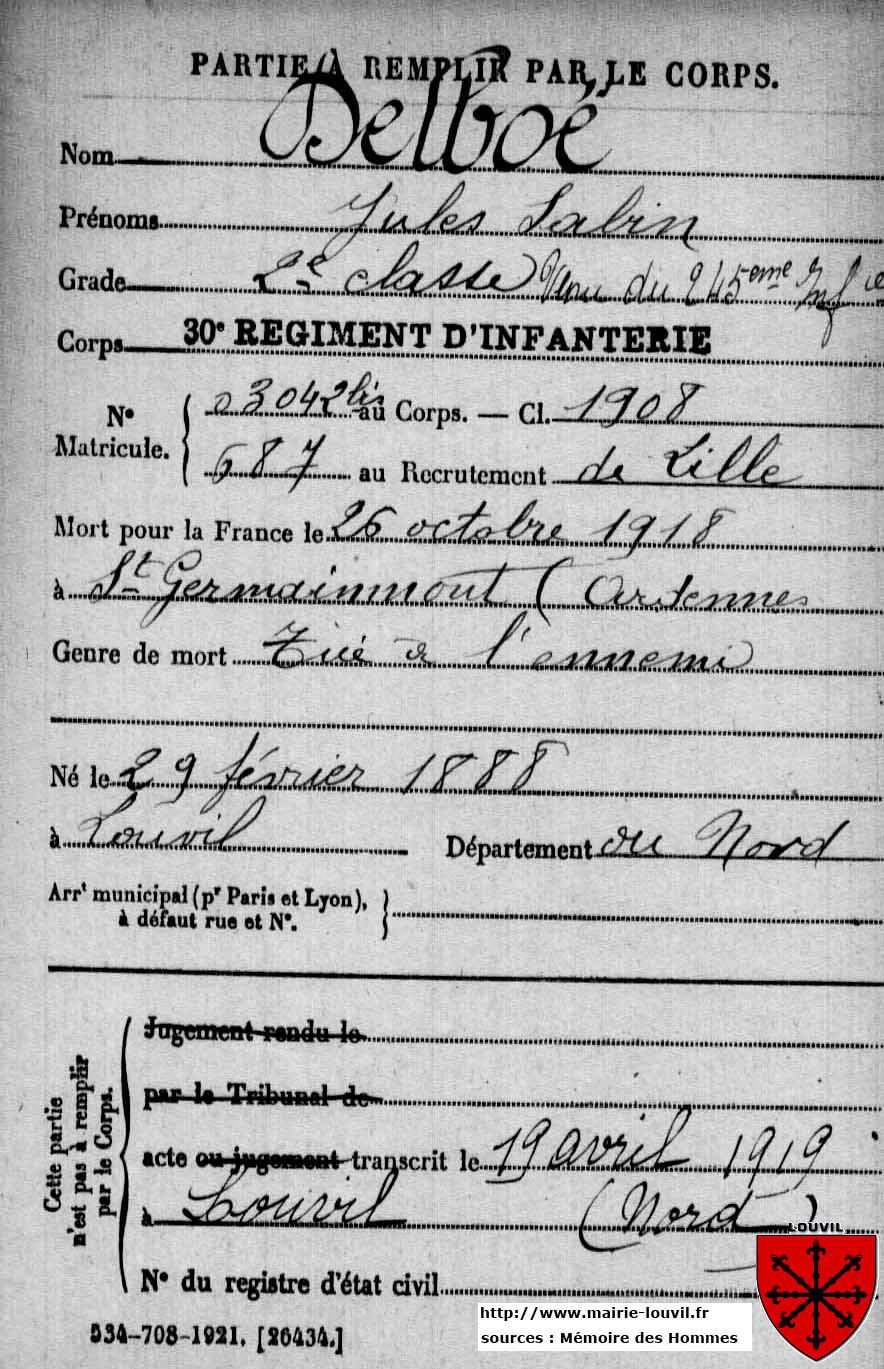 PARTIE À REMPLIR PAR LE CORPS.
Nom Delboé
Prénoms Jules Sabin
Grade 2e classe Venu du 245eme Infie
Corps 30e REGIMENT D'INFANTERIE
No Matricule. { 03042 bis au Corps. — Cl. 1908
687 au Recrutement de Lille
Mort pour la France le 26 octobre 1918
à St Germainmont (Ardennes
Genre de mort Tué à l'ennemi
Né le 29 février 1888
à Louvil Département du Nord
Arrt municipal (pr Paris et Lyon),
à défaut rue et No.
Cette partie
n'est pas à remplir
par le Corps.
Jugement rendu le
par le Tribunal de
acte ou jugement transcrit le 19 avril 1919
à Louvil (Nord)
No du registre d'état civil
534-708-1921. [26434.]
LOUVIL
http://www.mairie-louvil.fr
sources : Mémoire des Hommes